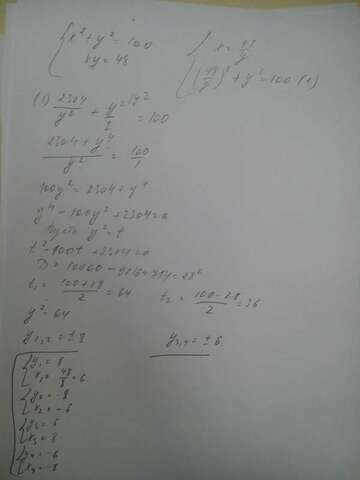 { x² + y² = 100
xy = 48
{ x = 48/y
(48/y)² + y² = 100 (1)
(1) 2304/y² + y²/1 = 100
(2304 + y⁴)/y² = 100/1
100y² = 2304 + y⁴
y⁴ - 100y² + 2304 = 0
Пусть y² = t
t² - 100t + 2304 = 0
D = 10000 - 9216 = 784 = 28²
t₁ = (100 + 28)/2 = 64
t₂ = (100 - 28)/2 = 36
y² = 64
y₁,₂ = ± 8
y₃,₄ = ± 6
{ y₁ = 8
x₁ = 48/8 = 6
{ y₂ = -8
x₂ = -6
{ y₃ = 6
x₃ = 8
{ y₄ = -6
x₄ = -8